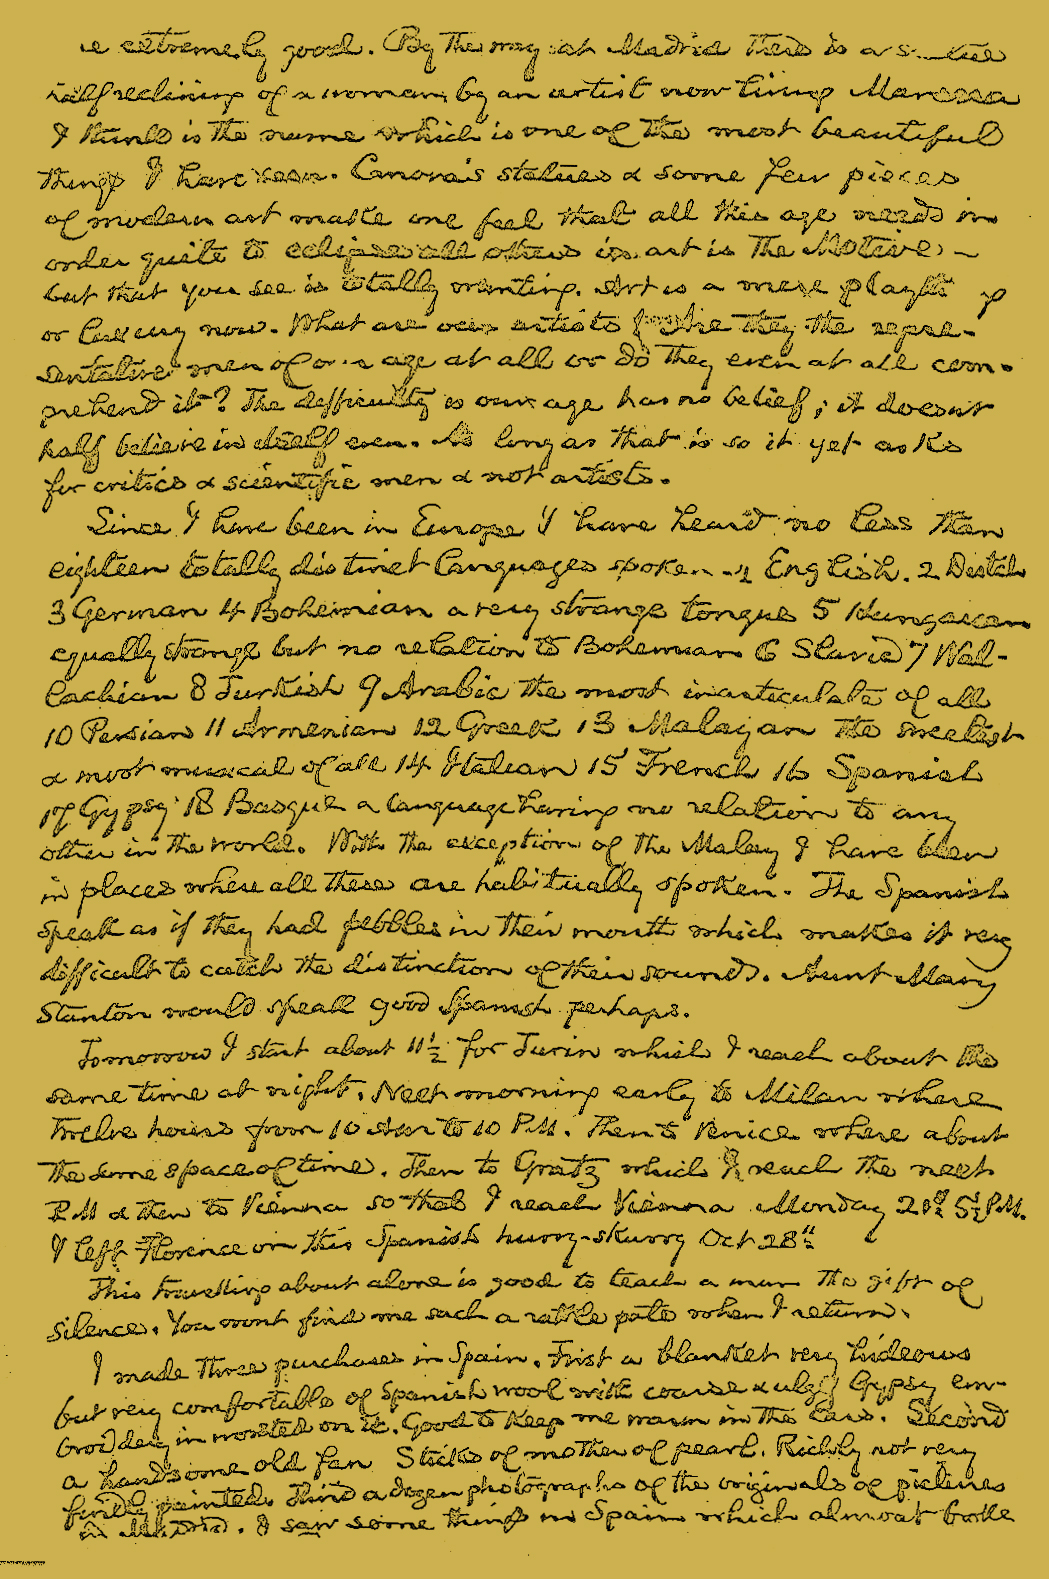 be extremely good. By the way at Madrid there is a statue
half reclining of a woman, by an artist now living
I think is the name which is one of the most beautiful
things I have seen. Canova's statues & some few pieces
of modern art make one feel that all this age needs in
order quite to eclipse all others in art is the Motive, –
but that you see is totally wanting. Art is a mere plaything
or luxury now. What are our artists for Are they the repre-
sentative men of our age at all or do they even at all com-
prehend it? The difficulty is our age has no belief; it doesnt
half believe in itself even. As long as that is so it yet asks
for critics & scientific men & not artists.
Since I have been in Europe I have heard no less than
eighteen totally distinct languages spoken – 1 English. 2 Dutch
3 German 4 Bohemian a very strange tongue 5 Hungarian
equally strange but no relation to Bohemian 6 Slavic 7 Wal-
lachian 8 Turkish 9 Arabic the most inarticulate of all
10 Persian 11 Armenian 12 Greek 13 Malayan the sweetest
& most musical of all 14 Italian 15 French 16 Spanish
17 Gypsy 18 Basque a language having no relation to any
other in the world. With the exception of the Malay I have been
in places where all these are habitually spoken. The Spanish
speak as if they had pebbles in their mouth which makes it very
difficult to catch the distinction of their sounds. Aunt Mary
Stanton would speak good Spanish perhaps.
Tomorrow I start about 11½ for Turin which I reach about the
same time at night. Next morning early to Milan where
twelve hours from 10 AM to 10 P.M. Then to Venice where about
the same space of time. Then to Gratz which I reach the next
P.M & then to Vienna so that I reach Vienna Monday P.M.
I left Florence on this Spanish hurry-skurry Oct 28th
This travelling about alone is good to teach a man the gift of
silence. You wont find me such a rattle pate when I return.
I made three purchases in Spain. First a blanket very hideous
but very comfortable of Spanish wool with coarse & ugly Gypsy em-
broidery in worsted on it. Good to keep me warm in the cars. Second
a handsome old fan Sticks of mother of pearl. Richly not very
finely painted. Third a dozen photographs of the originals of pictures
in Madrid. I saw some things in Spain which almost broke